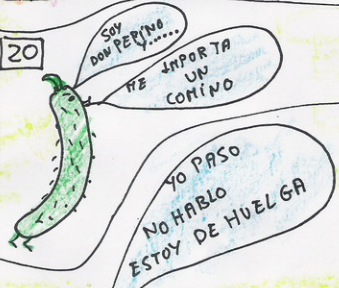 20
SOY
DON PEPINO
Y......
ME IMPORTA
UN
COMINO
YO PASO
NO HABLO
ESTOY DE HUELGA